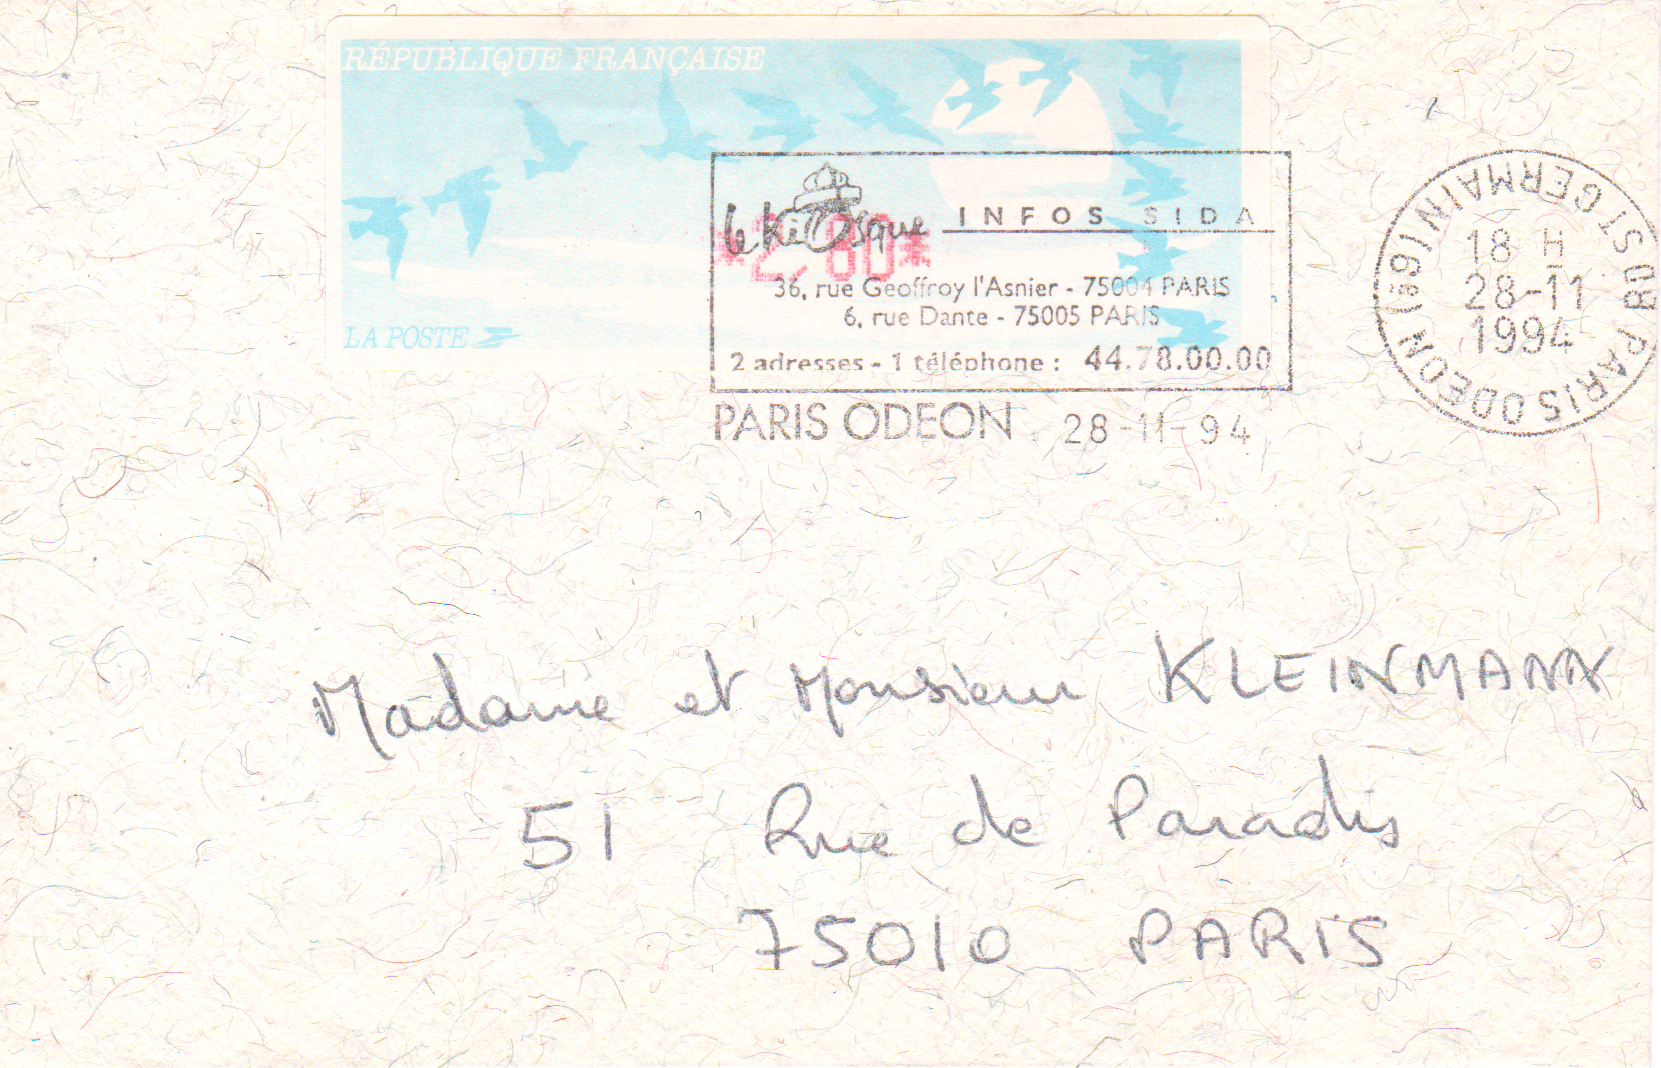 RÉPUBLIQUE FRANÇAISE
le Kiosque INFOS SIDA
*2,80*
36, rue Geoffroy l'Asnier - 75004 PARIS
6, rue Dante - 75005 PARIS
LA POSTE
2 adresses - 1 téléphone : 44.78.00.00
PARIS ODEON 28-11-94
PARIS ODEON (6e) IN
BD ST GERMAIN
18 H
28-11
1994
Madame et Monsieur KLEINMANN
51 Rue de Paradis
75010 PARIS